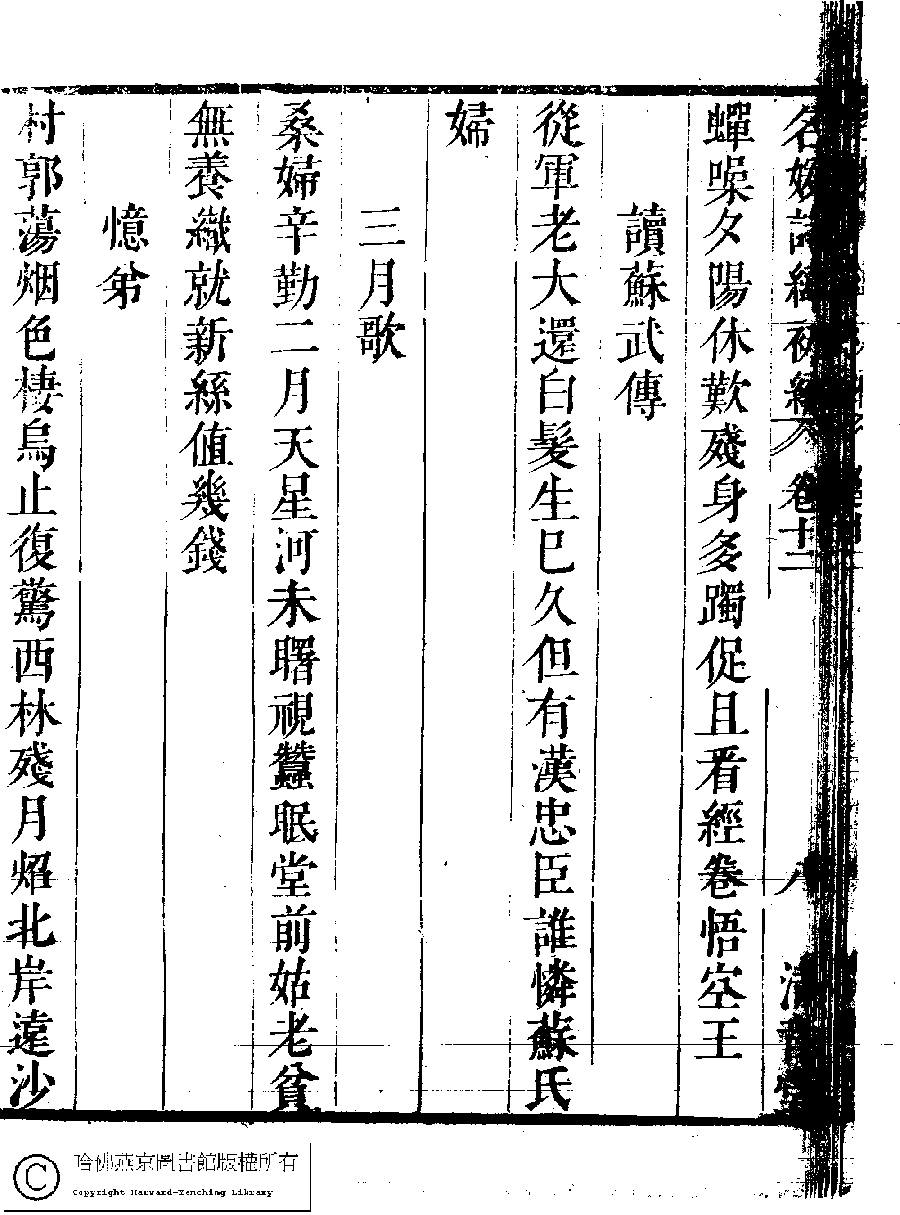 名媛詩緯初編 卷十二 八 清音堂
蟬噪夕陽休歎殘身多躅促且看經卷悟空王
讀蘇武傳
從軍老大還白髮生巳久但有漢忠臣誰憐蘇氏
婦
三月歌
桑婦辛勤二月天星河未曙視蠶眠堂前姑老貧
無養織就新絲值幾錢
憶弟
村郭蕩烟色棲烏止復驚西林殘月熖北岸遠沙
哈佛燕京圖書館版權所有
Copyright Harvard-Yenching Library